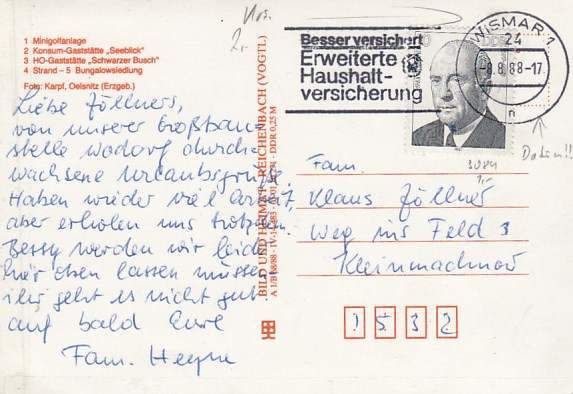 1 Minigolfanlage
2 Konsum-Gaststätte „Seeblick“
3 HO-Gaststätte „Schwarzer Busch“
4 Strand – 5 Bungalowsiedlung
Foto: Karpf, Oelsnitz (Erzgeb.)
Liebe Zöllners,
von unserer Großbau-
stelle wachsene Urlaubsgrüße
Haben wieder viel Arbeit,
aber erholen uns trotzdem.
Bessy werden wir leider
hier oben lassen müssen
ihr geht es nicht gut.
auf bald Eure
Fam. Heyne
BILD UND HEIMAT · REICHENBACH (VOGTL)
DDR 0,25 M
Besser versichert
Erweiterte
Haushalt-
versicherung
WISMAR 1
24
-8.8.88-17
n
DDR
Datum!!
3089
1,-
2,-
Fam.
Klaus Zöllner
Weg ins Feld 3
Kleinmachnow
1532